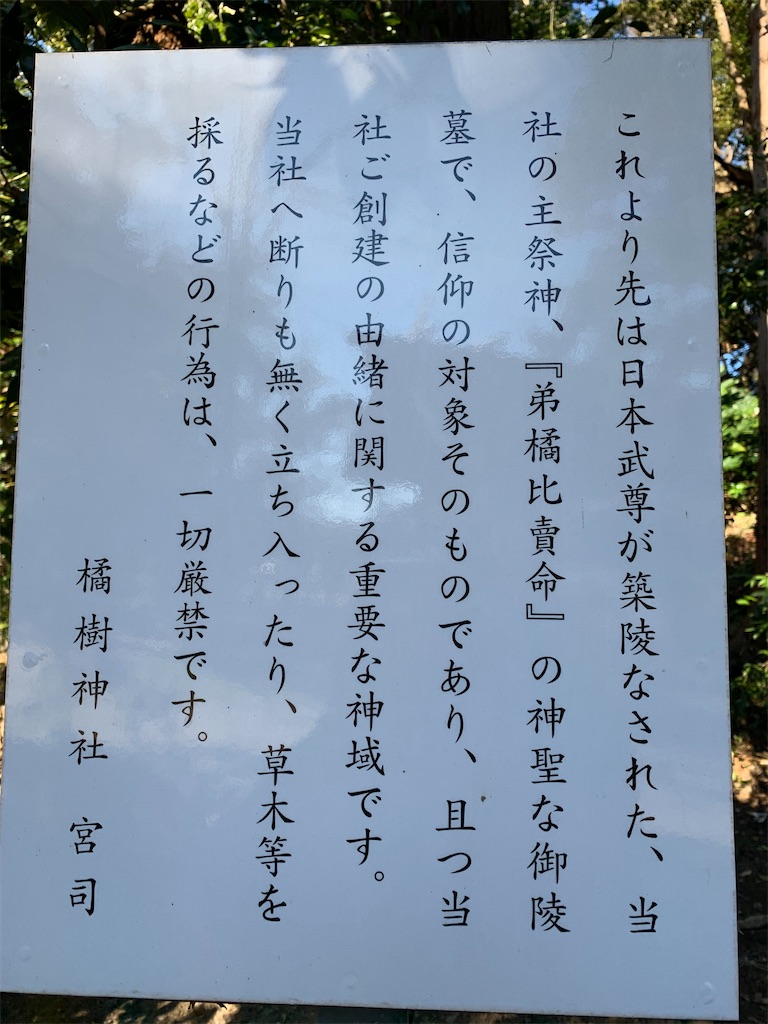 これより先は日本武尊が築陵なされた、当
社の主祭神、『弟橘比賣命』の神聖な御陵
墓で、信仰の対象そのものであり、且つ当
社ご創建の由緒に関する重要な神域です。
当社へ断りも無く立ち入ったり、草木等を
採るなどの行為は、一切厳禁です。
橘樹神社 宮司